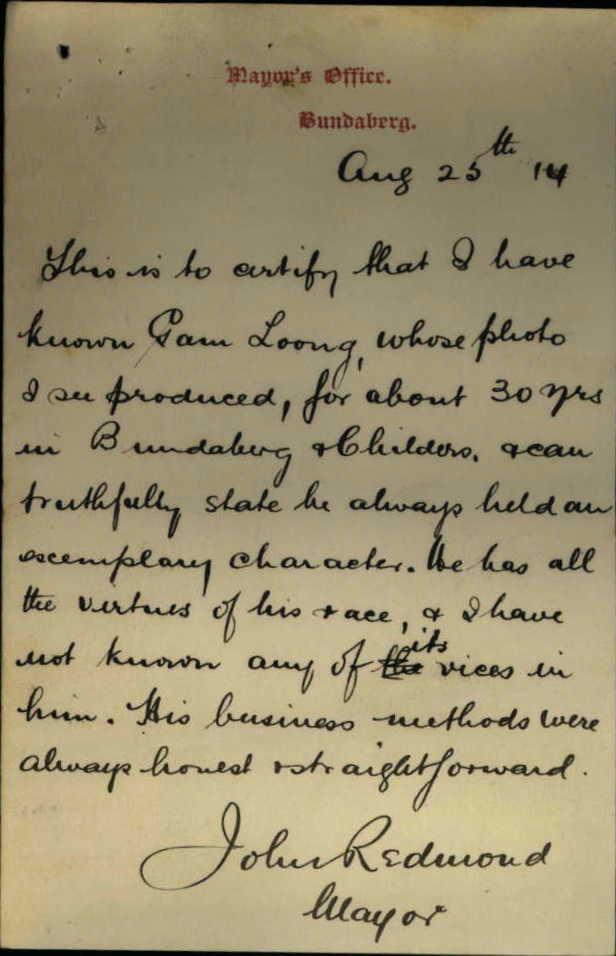 Mayor's Office.
Bundaberg.
Aug 25th 14
This is to certify that I have
known Gam Loong, whose photo
I see produced, for about 30 yrs
in Bundaberg & Childers, & can
truthfully state he always held an
exemplary character. He has all
the virtues of his race, & I have
not known any of the its vices in
him. His business methods were
always honest & straightforward.
John Redmond
Mayor